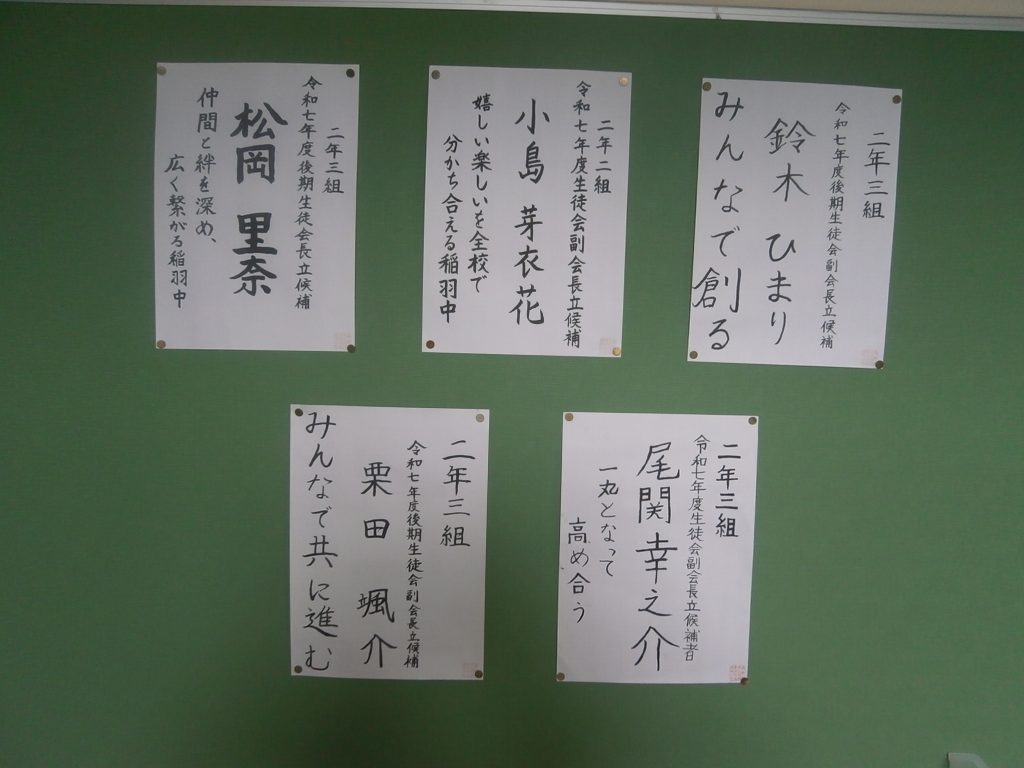 二年三組
令和七年度後期生徒会長立候補
松岡 里奈
仲間と絆を深め、
広く繋がる稲羽中
二年二組
令和七年度生徒会副会長立候補
小島 芽衣花
嬉しい楽しいを全校で
分かち合える稲羽中
二年三組
令和七年度後期生徒会副会長立候補
鈴木 ひまり
みんなで創る
二年三組
令和七年度後期生徒会副会長立候補
栗田 颯介
みんなで共に進む
二年三組
令和七年度生徒会副会長立候補者
尾関 幸之介
一丸となって
高め合う